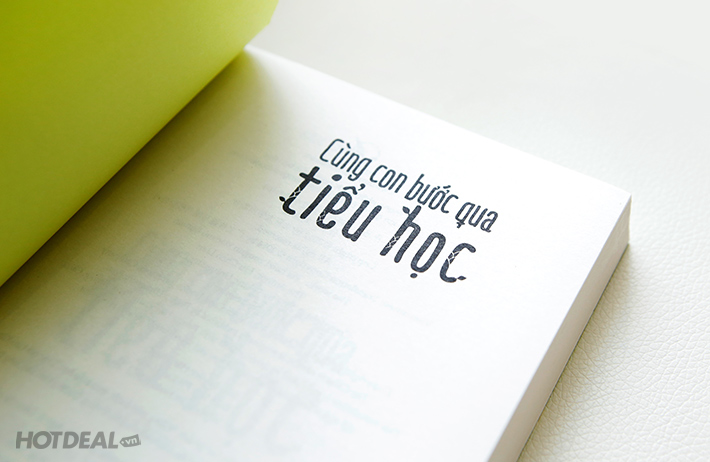 Cùng con bước qua
tiểu học
HOTDEAL.vn